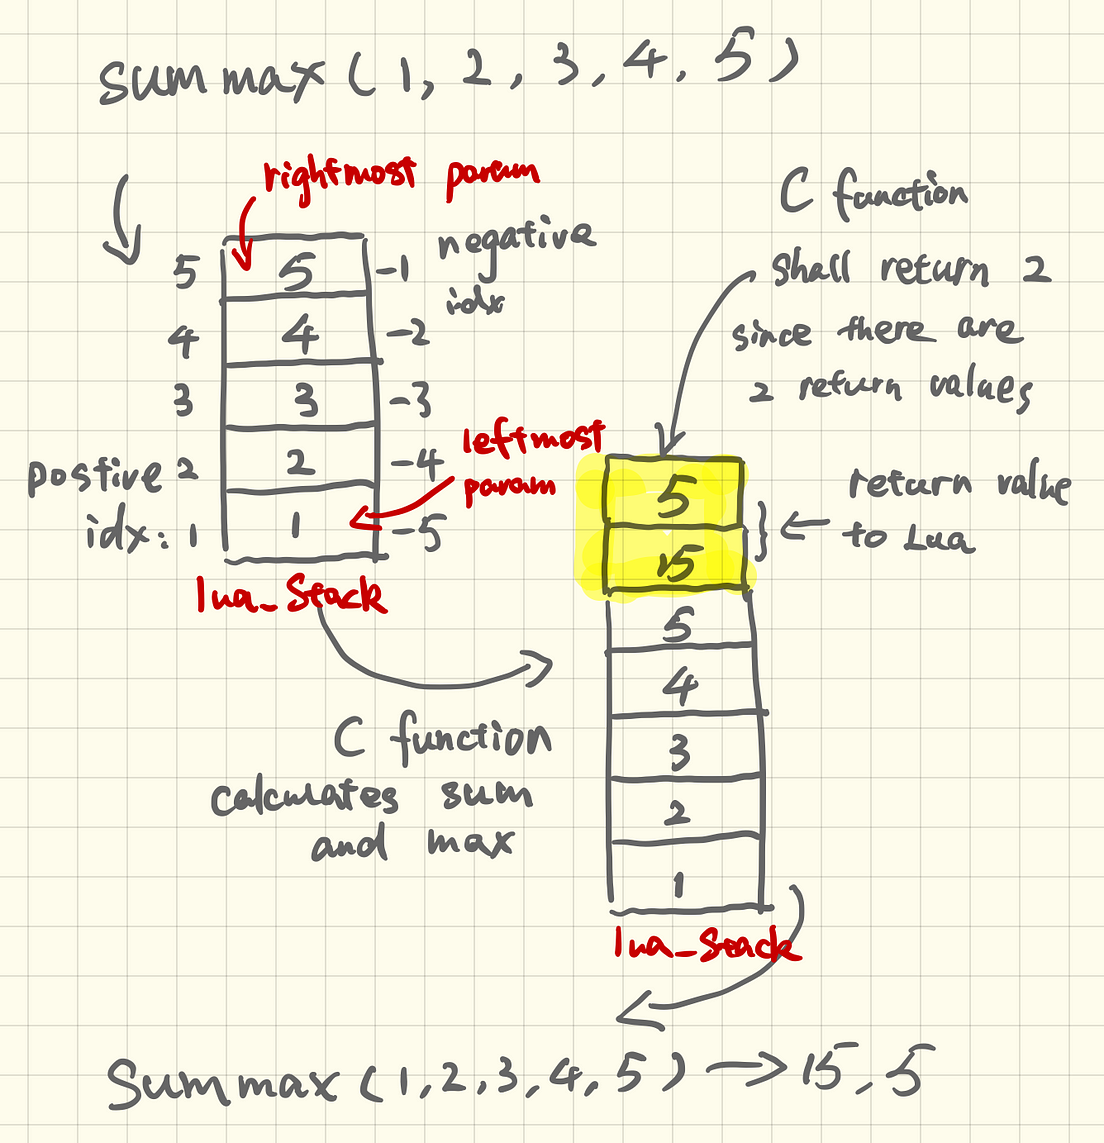 summax (1, 2, 3, 4, 5)
rightmost param
negative
idx
5 5 -1
4 4 -2
3 3 -3
postive 2 2 -4
idx: 1 1 -5
leftmost
param
lua_Stack
C function
calculates sum
and max
C function
shall return 2
since there are
2 return values
5
15
return value
to Lua
5
4
3
2
1
lua_Stack
Summax (1,2,3,4,5) → 15,5